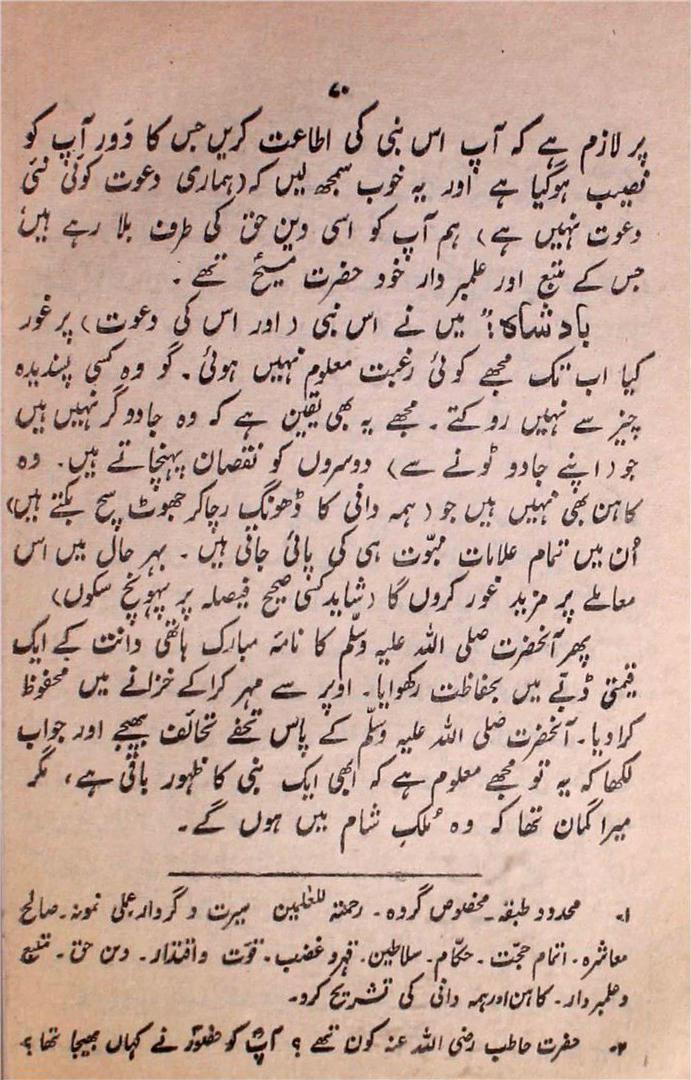 ۷۰
پر لازم ہے کہ آپ اس نبی کی اطاعت کریں جس کا دَور آپ کو
نصیب ہوگیا ہے اور یہ خوب سمجھ لیں کہ (ہماری دعوت کوئی نئی
دعوت نہیں ہے) ہم آپ کو اسی دین حق کی طرف بلا رہے ہیں
جس کے متبع اور علمبردار خود حضرت مسیحؑ تھے۔
بادشاہ: "میں نے اس نبی (اور اس کی دعوت) پر غور
کیا اب تک مجھے کوئی رغبت معلوم نہیں ہوئی۔ گو وہ کسی پسندیدہ
چیز سے نہیں روکتے۔ مجھے یہ بھی یقین ہے کہ وہ جادوگر نہیں ہیں
جو (اپنے جادو ٹونے سے) دوسروں کو نقصان پہنچاتے ہیں۔ وہ
کاہن بھی نہیں ہیں جو (ہمہ دانی کا ڈھونگ رچا کر جھوٹ سچ بکتے ہیں)
اُن میں تمام علامات نبوّت ہی کی پائی جاتی ہیں۔ بہر حال میں اس
معاملے پر مزید غور کروں گا (شاید کسی صحیح فیصلہ پر پہونچ سکوں)
پھر آنحضرت صلی اللہ علیہ وسلّم کا نامہ مبارک ہاتھی دانت کے ایک
قیمتی ڈبّے میں بحفاظت رکھوایا۔ اوپر سے مہر کرا کے خزانے میں محفوظ
کرا دیا۔ آنحضرت صلی اللہ علیہ وسلّم کے پاس تحفے تحائف بھیجے اور جواب
لکھا کہ یہ تو مجھے معلوم ہے کہ ابھی ایک نبی کا ظہور باقی ہے، مگر
میرا گمان تھا کہ وہ مُلکِ شام میں ہوں گے۔
۱۔ محدود طبقہ۔ مخصوص گروہ۔ رحمتہ للعٰلمین سیرت و کردار۔ عملی نمونہ۔ صالح
معاشرہ۔ اتمام حجّت۔ حکّام۔ سلاطین۔ قہر و غضب۔ قوّت و اقتدار۔ دین حق۔ متبع
و علمبردار۔ کاہن اور ہمہ دانی کی تشریح کرو۔
۲۔ حضرت حاطب رضی اللہ عنہ کون تھے؟ آپؓ کو حضورؐ نے کہاں بھیجا تھا؟